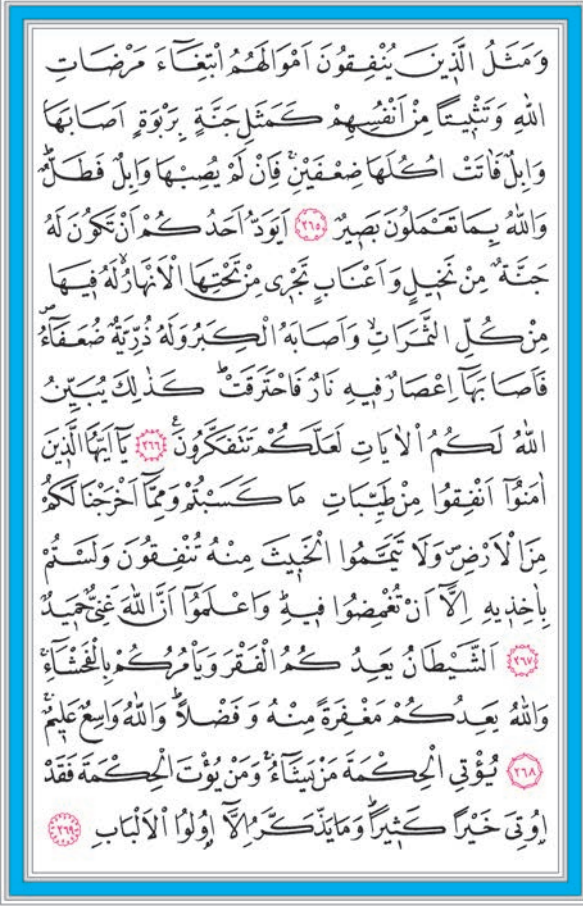 وَمَثَلُ الَّذ۪ينَ يُنْفِقُونَ اَمْوَالَهُمُ ابْتِغَٓاءَ مَرْضَاتِ
اللّٰهِ وَتَثْب۪يتًا مِنْ اَنْفُسِهِمْ كَمَثَلِ جَنَّةٍ بِرَبْوَةٍ اَصَابَهَا
وَابِلٌ فَاٰتَتْ اُكُلَهَا ضِعْفَيْنِۚ فَاِنْ لَمْ يُصِبْهَا وَابِلٌ فَطَلٌّۜ
وَاللّٰهُ بِمَا تَعْمَلُونَ بَص۪يرٌ ﴿٢٦٥﴾ اَيَوَدُّ اَحَدُكُمْ اَنْ تَكُونَ لَهُ
جَنَّةٌ مِنْ نَخ۪يلٍ وَاَعْنَابٍ تَجْر۪ي مِنْ تَحْتِهَا الْاَنْهَارُۙ لَهُ ف۪يهَا
مِنْ كُلِّ الثَّمَرَاتِۙ وَاَصَابَهُ الْكِبَرُ وَلَهُ ذُرِّيَّةٌ ضُعَفَٓاءُۖ
فَاَصَابَهَٓا اِعْصَارٌ ف۪يهِ نَارٌ فَاحْتَرَقَتْۜ كَذٰلِكَ يُبَيِّنُ
اللّٰهُ لَكُمُ الْاٰيَاتِ لَعَلَّكُمْ تَتَفَكَّرُونَ۟ ﴿٢٦٦﴾ يَٓا اَيُّهَا الَّذ۪ينَ
اٰمَنُٓوا اَنْفِقُوا مِنْ طَيِّبَاتِ مَا كَسَبْتُمْ وَمِمَّٓا اَخْرَجْنَا لَكُمْ
مِنَ الْاَرْضِۖ وَلَا تَيَمَّمُوا الْخَب۪يثَ مِنْهُ تُنْفِقُونَ وَلَسْتُمْ
بِاٰخِذ۪يهِ اِلَّٓا اَنْ تُغْمِضُوا ف۪يهِۜ وَاعْلَمُٓوا اَنَّ اللّٰهَ غَنِيٌّ حَم۪يدٌ
﴿٢٦٧﴾ اَلشَّيْطَانُ يَعِدُكُمُ الْفَقْرَ وَيَأْمُرُكُمْ بِالْفَحْشَٓاءِۚ
وَاللّٰهُ يَعِدُكُمْ مَغْفِرَةً مِنْهُ وَفَضْلًاۜ وَاللّٰهُ وَاسِعٌ عَل۪يمٌۚ
﴿٢٦٨﴾ يُؤْتِي الْحِكْمَةَ مَنْ يَشَٓاءُۚ وَمَنْ يُؤْتَ الْحِكْمَةَ فَقَدْ
اُو۫تِيَ خَيْرًا كَث۪يرًاۜ وَمَا يَذَّكَّرُ اِلَّٓا اُو۬لُوا الْاَلْبَابِ ﴿٢٦٩﴾